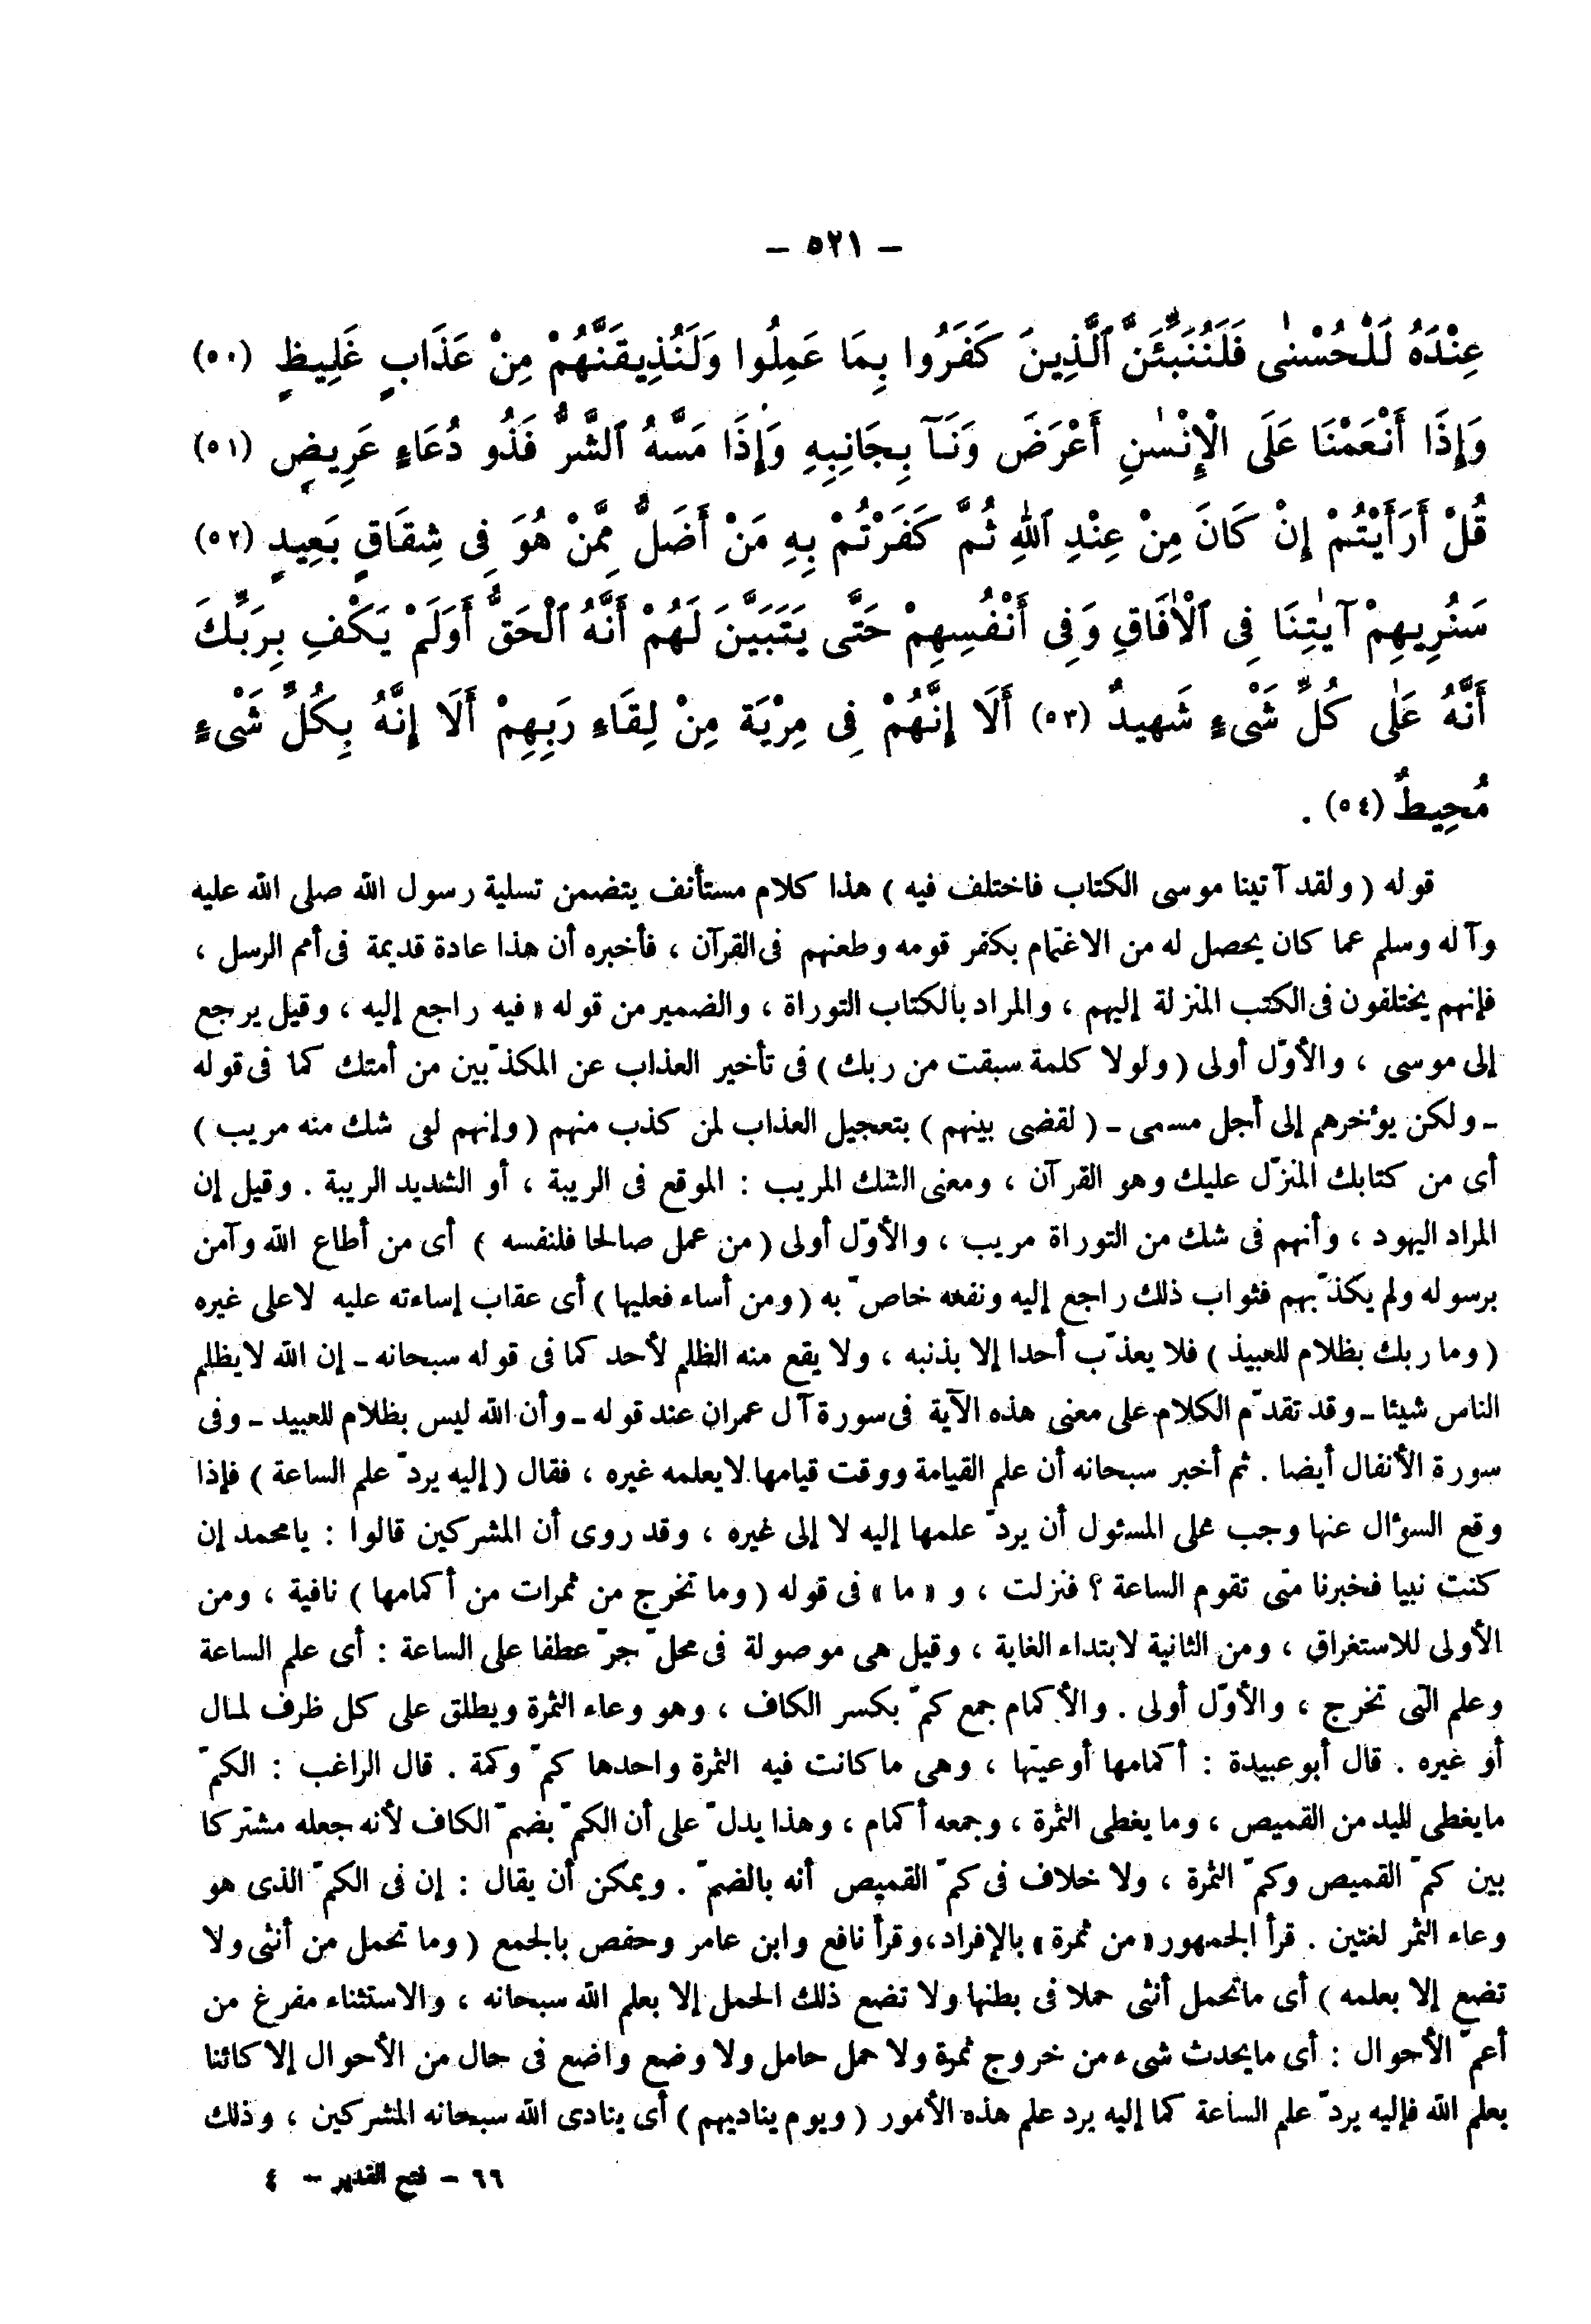 – ٥٢١ –
عِنْدَهُ لَلْحُسْنٰى فَلَنُنَبِّئَنَّ ٱلَّذِينَ كَفَرُوا بِمَا عَمِلُوا وَلَنُذِيقَنَّهُمْ مِنْ عَذَابٍ غَلِيظٍ (٥٠)
وَإِذَا أَنْعَمْنَا عَلَى الْإِنْسٰنِ أَعْرَضَ وَنَـَٔا بِجَانِبِهِ وَإِذَا مَسَّهُ ٱلشَّرُّ فَذُو دُعَاءٍ عَرِيضٍ (٥١)
قُلْ أَرَأَيْتُمْ إِنْ كَانَ مِنْ عِنْدِ ٱللهِ ثُمَّ كَفَرْتُمْ بِهِ مَنْ أَضَلُّ مِمَّنْ هُوَ فِى شِقَاقٍ بَعِيدٍ (٥٢)
سَنُرِيهِمْ آيٰتِنَا فِى ٱلْاٰفَاقِ وَفِى أَنْفُسِهِمْ حَتَّى يَتَبَيَّنَ لَهُمْ أَنَّهُ ٱلْحَقُّ أَوَلَمْ يَكْفِ بِرَبِّكَ
أَنَّهُ عَلٰى كُلِّ شَىْءٍ شَهِيدٌ (٥٣) أَلَا إِنَّهُمْ فِى مِرْيَة مِنْ لِقَاءِ رَبِهِمْ أَلَا إِنَّهُ بِكُلِّ شَىْءٍ
مُحِيطٌ (٥٤) .
قوله ( ولقد آتينا موسى الكتاب فاختلف فيه ) هذا كلام مستأنف يتضمن تسلية رسول الله صلى الله عليه
وآله وسلم عما كان يحصل له من الاغتمام بكفر قومه وطعنهم فى القرآن ، فأخبره أن هذا عادة قديمة فى أمم الرسل ،
فإنهم يختلفون فى الكتب المنزلة إليهم ، والمراد بالكتاب التوراة ، والضمير من قوله « فيه راجع إليه ، وقيل يرجع
إلى موسى ، والأوّل أولى ( ولولا كلمة سبقت من ربك ) فى تأخير العذاب عن المكذّبين من أمتك كما فى قوله
ـ ولكن يؤخرهم إلى أجل مسمى ـ ( لقضى بينهم ) بتعجيل العذاب لمن كذب منهم ( وإنهم لفى شك منه مريب )
أى من كتابك المنزّل عليك وهو القرآن ، ومعنى الشك المريب : الموقع فى الريبة ، أو الشديد الريبة . وقيل إن
المراد اليهود ، وأنهم فى شك من التوراة مريب ، والأوّل أولى ( من عمل صالحا فلنفسه ) أى من أطاع الله وآمن
برسوله ولم يكذّبهم فثواب ذلك راجع إليه ونفعه خاصّ به ( ومن أساء فعليها ) أى عقاب إساءته عليه لاعلى غيره
( وما ربك بظلام للعبيد ) فلا يعذّب أحدا إلا بذنبه ، ولا يقع منه الظلم لأحد كما فى قوله سبحانه ـ إن الله لايظلم
الناس شيئا ـ وقد تقدّم الكلام على معنى هذه الآية فى سورة آل عمران عند قوله ـ وأن الله ليس بظلام للعبيد ـ وفى
سورة الأنفال أيضا . ثم أخبر سبحانه أن علم القيامة ووقت قيامها لايعلمه غيره ، فقال ( إليه يردّ علم الساعة ) فإذا
وقع السؤال عنها وجب على المسئول أن يردّ علمها إليه لا إلى غيره ، وقد روى أن المشركين قالوا : يامحمد إن
كنت نبيا فخبرنا متى تقوم الساعة ؟ فنزلت ، و « ما » فى قوله ( وما تخرج من ثمرات من أكمامها ) نافية ، ومن
الأولى للاستغراق ، ومن الثانية لابتداء الغاية ، وقيل هى موصولة فى محلّ جرّ عطفا على الساعة : أى علم الساعة
وعلم التى تخرج ، والأوّل أولى . والأكمام جمع كمّ بكسر الكاف ، وهو وعاء الثمرة ويطلق على كل ظرف لمال
أو غيره . قال أبو عبيدة : أكمامها أوعيتها ، وهى ما كانت فيه الثمرة واحدها كمّ وكمة . قال الراغب : الكمّ
مايغطى لليد من القميص ، وما يغطى الثمرة ، وجمعه أكمام ، وهذا يدلّ على أن الكمّ بضمّ الكاف لأنه جعله مشتركا
بين كمّ القميص وكمّ الثمرة ، ولا خلاف فى كمّ القميص أنه بالضمّ . ويمكن أن يقال : إن فى الكمّ الذى هو
وعاء الثمر لغتين . قرأ الجمهور « من ثمرة » بالإفراد، وقرأ نافع وابن عامر وحفص بالجمع ( وما تحمل من أنثى ولا
تضع إلا بعلمه ) أى ماتحمل أنثى حملا فى بطنها ولا تضع ذلك الحمل إلا بعلم الله سبحانه ، والاستثناء مفرغ من
أعمّ الأحوال : أى مايحدث شىء من خروج ثمرة ولا حمل حامل ولا وضع واضع فى حال من الأحوال إلا كائنا
بعلم الله فإليه يردّ علم الساعة كما إليه يرد علم هذه الأمور ( ويوم يناديهم ) أى ينادى الله سبحانه المشركين ، وذلك
٦٦ – فتح القدير – ٤